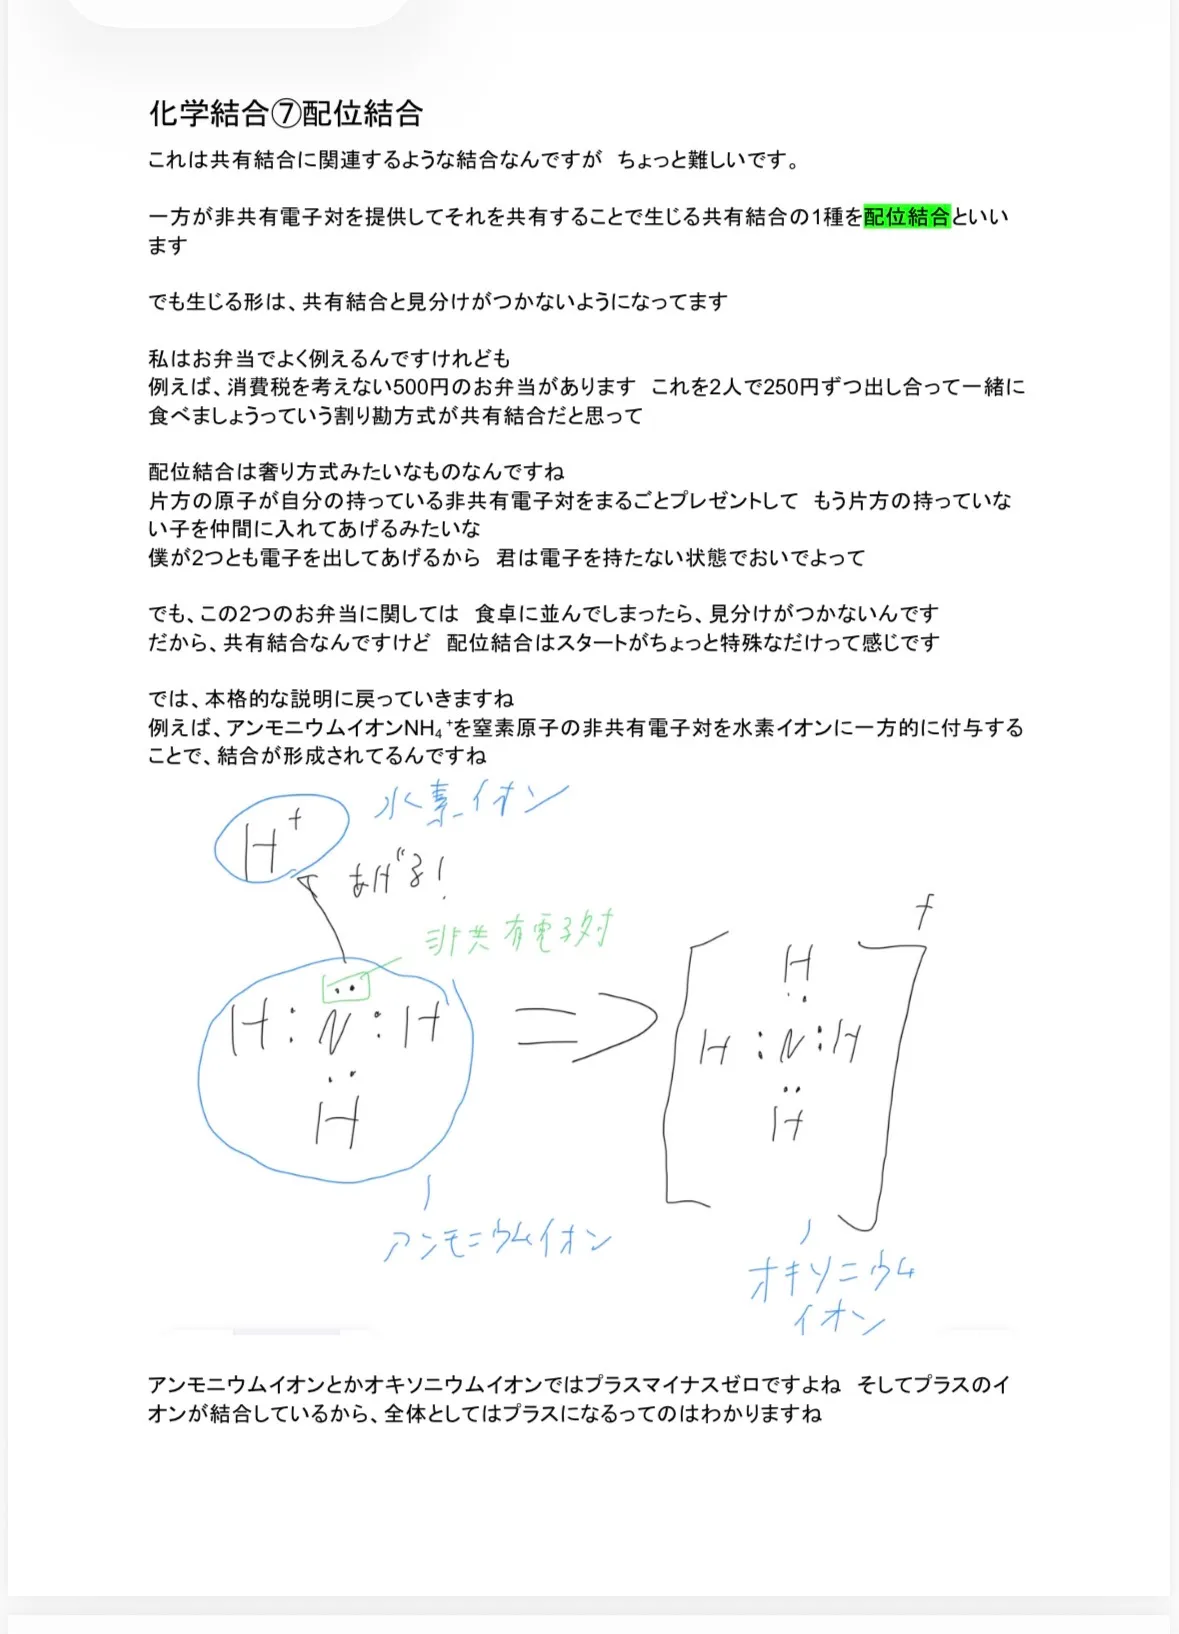 化学結合⑦配位結合
これは共有結合に関連するような結合なんですが　ちょっと難しいです。
一方が非共有電子対を提供してそれを共有することで生じる共有結合の1種を配位結合といい
ます
でも生じる形は、共有結合と見分けがつかないようになってます
私はお弁当でよく例えるんですけれども
例えば、消費税を考えない500円のお弁当があります　これを2人で250円ずつ出し合って一緒に
食べましょうっていう割り勘方式が共有結合だと思って
配位結合は奢り方式みたいなものなんですね
片方の原子が自分の持っている非共有電子対をまるごとプレゼントして　もう片方の持っていな
い子を仲間に入れてあげるみたいな
僕が2つとも電子を出してあげるから　君は電子を持たない状態でおいでよって
でも、この2つのお弁当に関しては　食卓に並んでしまったら、見分けがつかないんです
だから、共有結合なんですけど　配位結合はスタートがちょっと特殊なだけって感じです
では、本格的な説明に戻っていきますね
例えば、アンモニウムイオンNH₄⁺を窒素原子の非共有電子対を水素イオンに一方的に付与する
ことで、結合が形成されてるんですね
水素イオン
H⁺
あげる!
非共有電子対
H:N:H
H
⇒
+
H
H:N:H
H
アンモニウムイオン
オキソニウム
イオン
アンモニウムイオンとかオキソニウムイオンではプラスマイナスゼロですよね　そしてプラスのイ
オンが結合しているから、全体としてはプラスになるってのはわかりますね